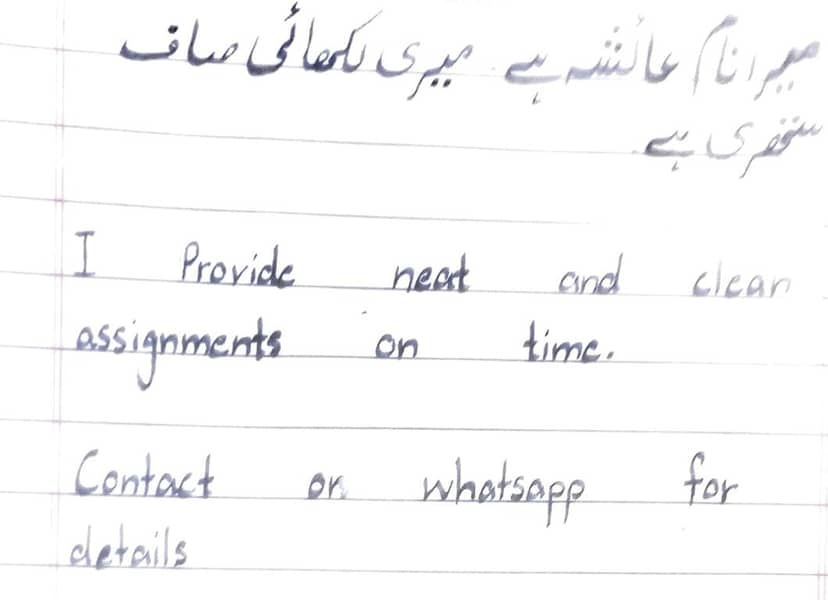 میرا نام عائشہ ہے۔ میری لکھائی صاف
ستھری ہے۔
I Provide neat and clean
assignments on time.
Contact on whatsapp for
details